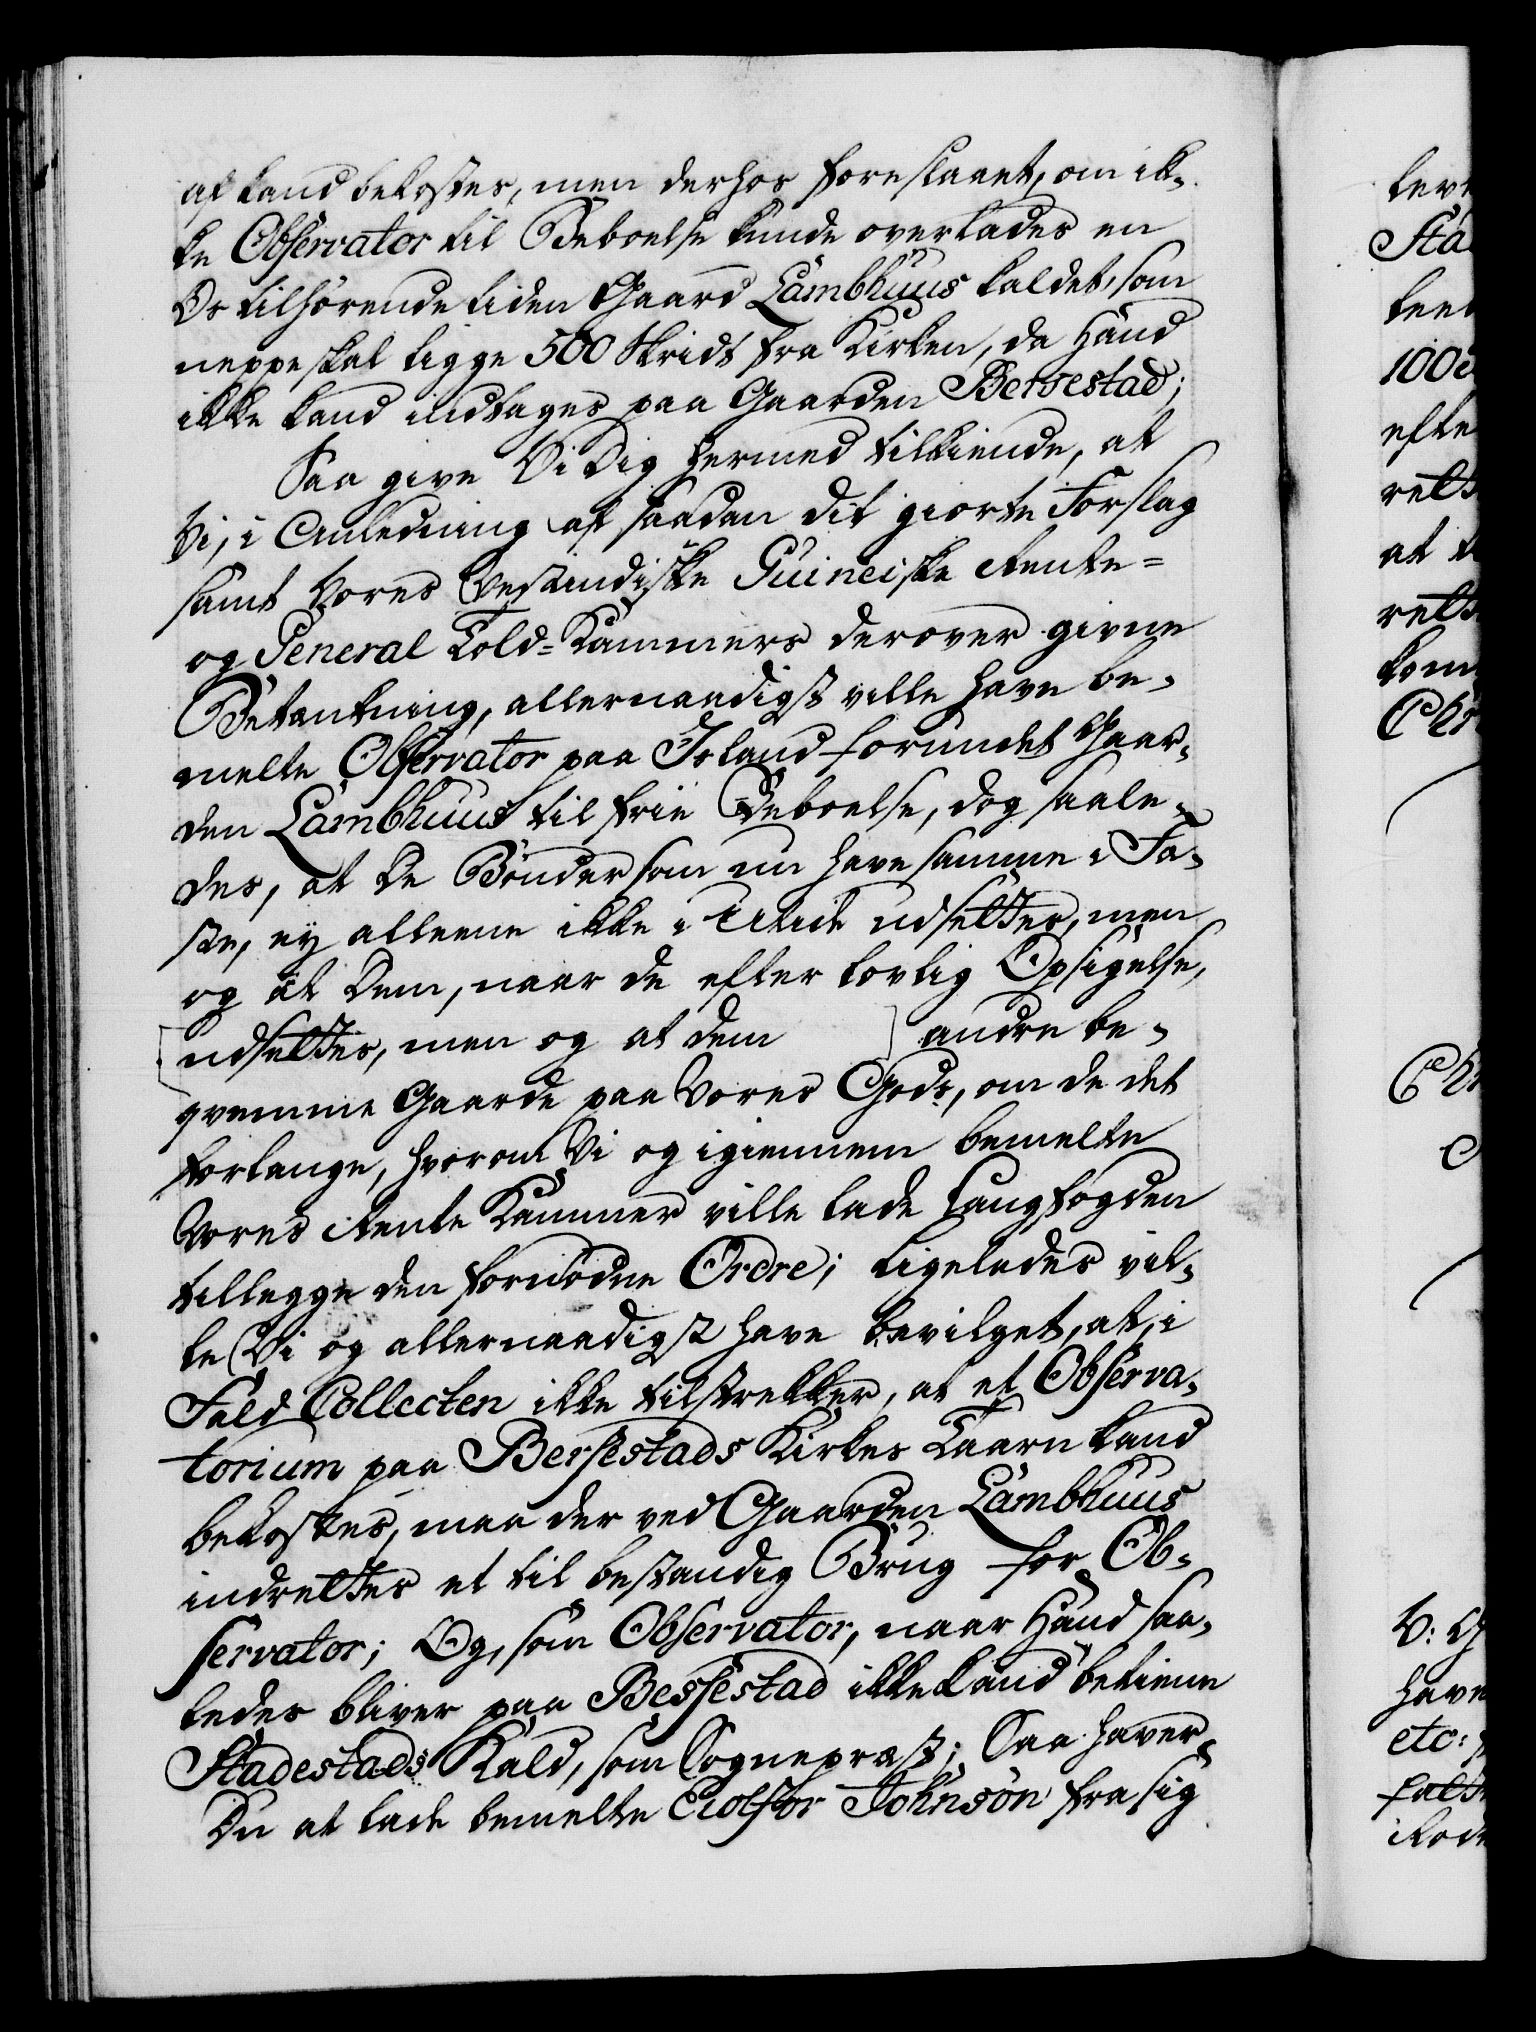 af kand bekostes, men derhos foreslaaet, om ik-
ke Observator til Beboelse kunde overlades en
Os tilhørende liden Gaard Lambhuus kaldet, som
neppe skal ligge 500 Skridt fra Kirken, da Hand
ikke kand indtages paa Gaarden Bersestad;
Saa give Vi Dig hermed tilkiende, at
Vi, i Anledning af saadan dit giorte Forslag
samt Vores Vestindiske Guineiske Rente=
og General Told=Kammers derover givne
Betænkning, allernaadigst ville have be-
melte Observator paa Island forundt Gaar-
den Lambhuus til frie Beboelse, dog saale-
des, at de Bønder som nu have samme i Fæ-
ste, ey alleene ikke i Utide udsettes, men
og at Dem, naar de efter lovlig Opsigelse,
udsettes, men og at dem andre be-
qvemme Gaarde paa Vores Gods, om de det
forlange, hvorom Vi og igiennem bemelte
Vores Rente Kammer ville lade Langfogden
tillegge den fornødne Ordre; Ligeledes vil-
le Vi og allernaadigst have bevilget, at, i
Fald Collecten ikke tilstrekker, at et Observa-
torium paa Bersestads Kirkes Taarn kand
bekostes, maa der ved Gaarden Lambhuus
indrettes et til bestandig Brug for Ob-
servator; Og, som Observator, naar Hand saa-
ledes bliver paa Bessestad ikke kand betiene
Stadestads Kald, som Sognepræst; Saa haver
Du at lade bemelte Eyolfor Johnsøn fra sig